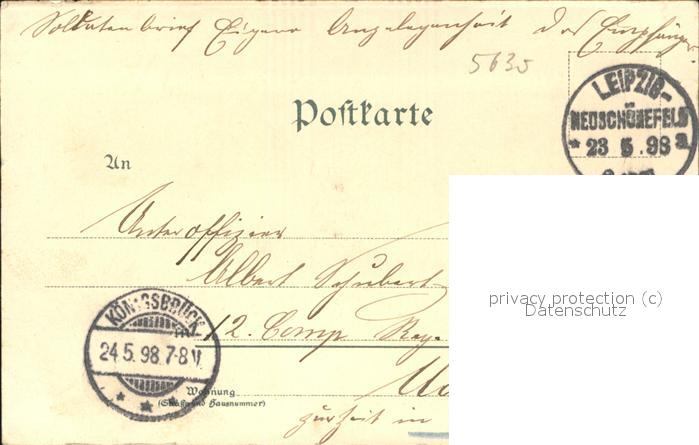 Soldatenbrief Eigene Angelegenheit des Empfängers
5635
Postkarte
LEIPZIG-
NEUSCHÖNEFELD
* 23 5.98 a
An
Unteroffizier
Albert Schubert
12. Comp Reg.
KÖNIGSBRÜCK
24.5.98.7-8V.
* * *
Wohnung
(Straße und Hausnummer)
zurzeit in
privacy protection (c)
Datenschutz